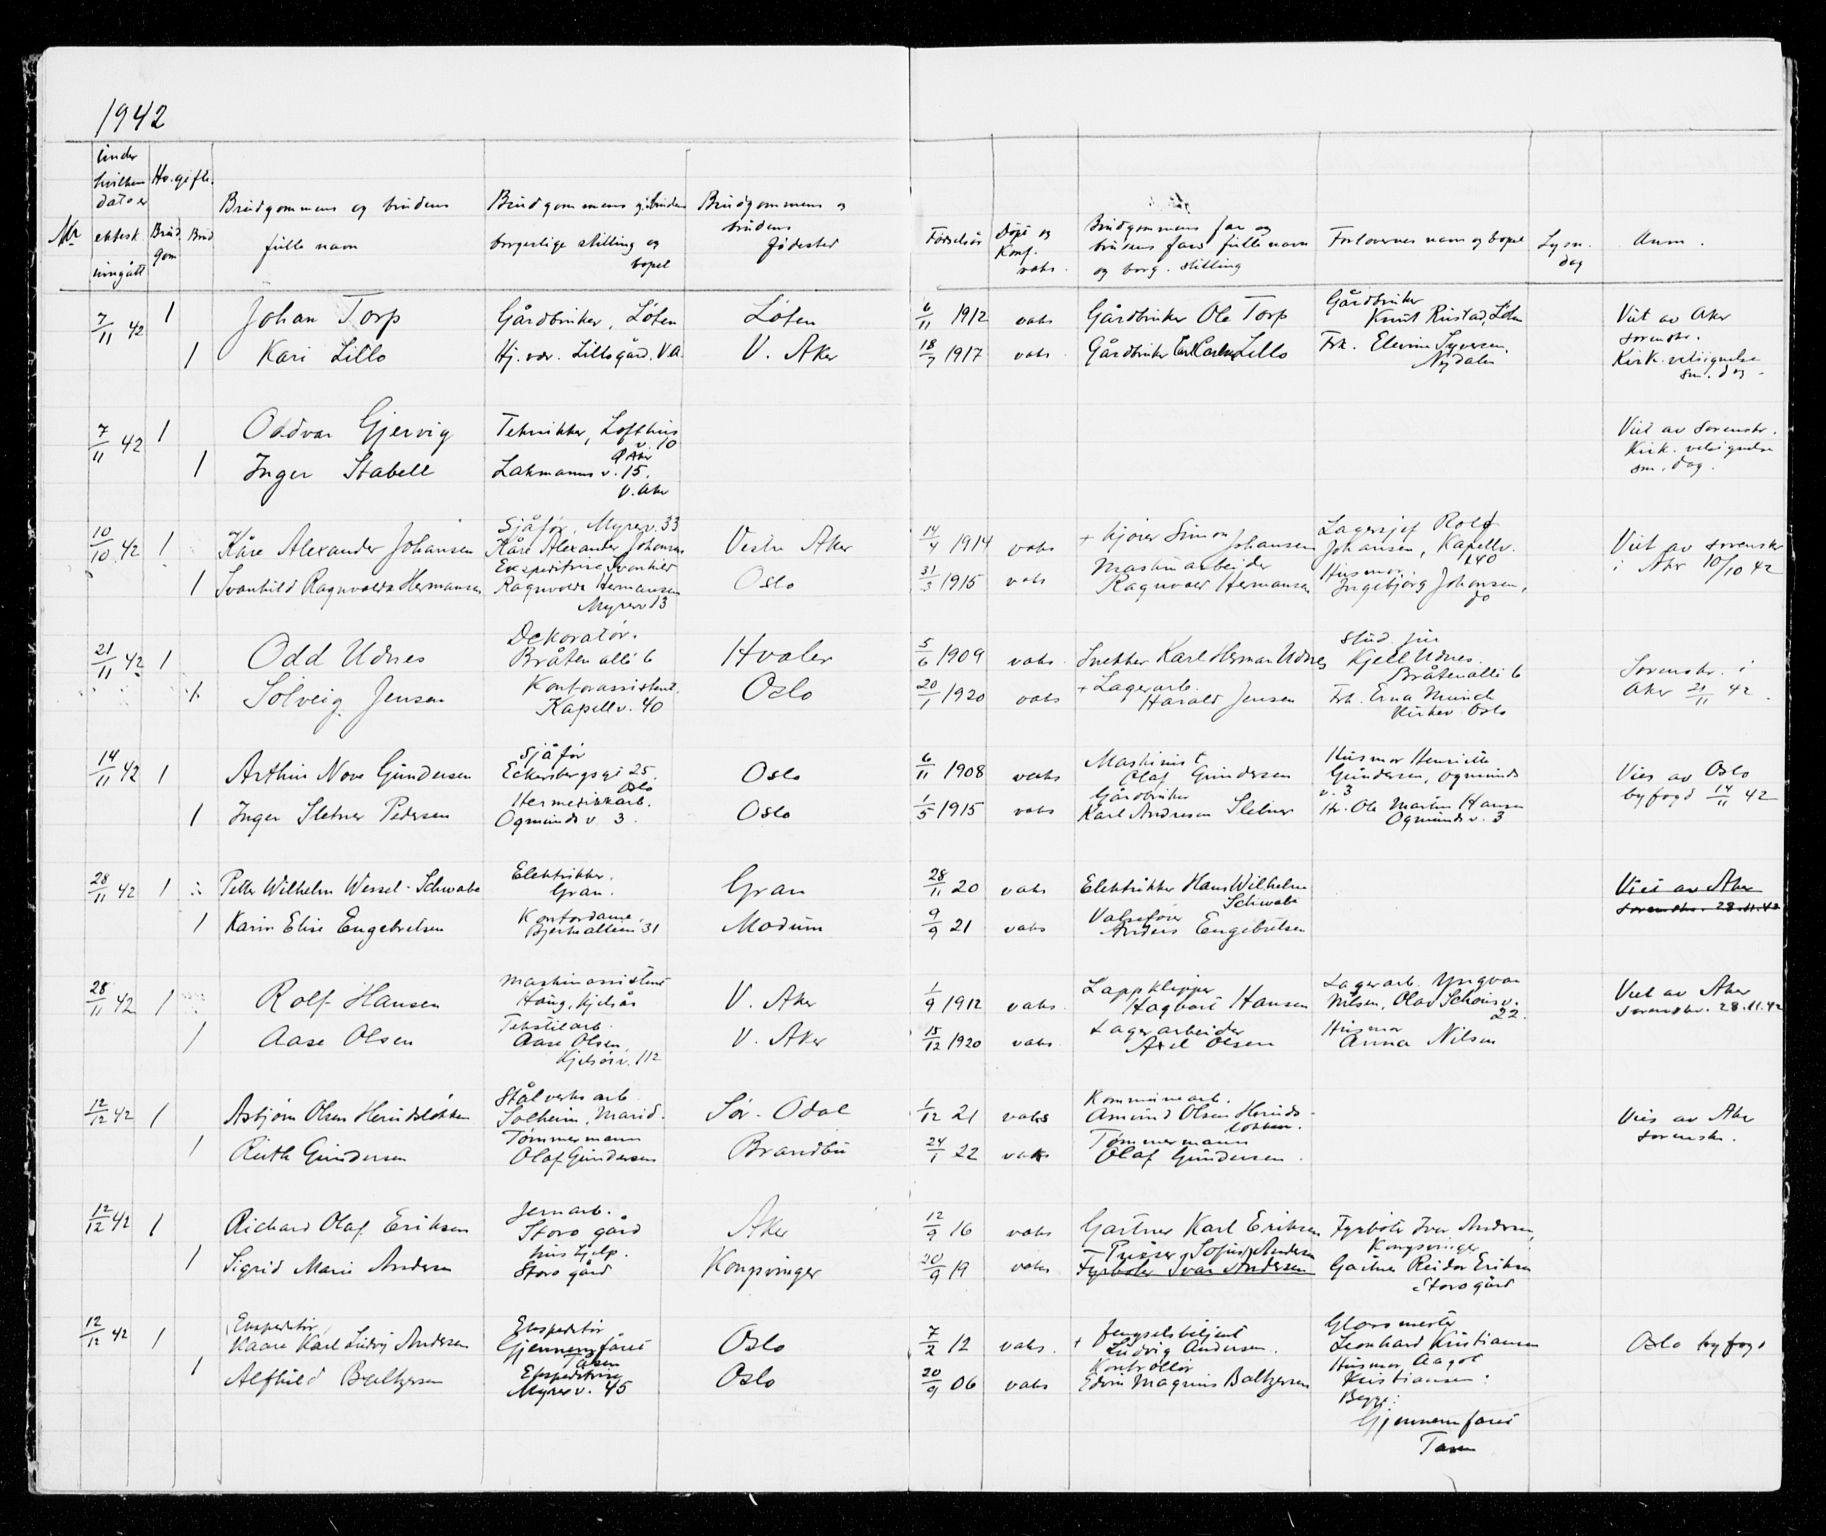 1942
Nr
Under hvilken dato er ektesk. inngått
Hv. gifte.
Brud gom
Brud
Brudgommens og brudens fulle navn
Brudgommens og brudens borgerlige stilling og bopel
Brudgommens og brudens fødested
Fødselsår
Døpt og Konf. vaks.
Brudgommens far og brudens fars fulle navn og borg. stilling
Forlovernes navn og bopel
Lysn. dag
Anm.
7/11 42 1 Johan Torp Gårdbruker, Løten Løten 6/11 1912 vaks Gårdbruker Ole Torp Gårdbruker Knut Rustad, Løten Viet av Aker sorenskr.
1 Kari Lillo Hj. vær. Lillogård. V.A. V. Aker 18/7 1917 vaks. Gårdbruker Lillo Frk. Elevine Syversen, Nydalen Kirk. velsignelse sm. dag.
7/11 42 1 Oddvar Gjervig Tekniker, Lofthus v. 10 Viet av sorenskr.
1 Inger Stabell Lakmanns v. 15. V. Aker Kirk. velsignelse sm. dag.
10/10 42 1 Kåre Alexander Johansen Sjåfør, Myrerv. 33 Kåre Alexander Johansen Vestre Aker 14/4 1914 vaks + Kjører Simon Johansen Lagersjef Rolf Johansen, Kapellv. 140 Viet av sorenskr i Aker 10/10 42
1 Svanhild Ragnvalda Hermansen Ekspeditrise Svanhild Ragnvalda Hermansen Myrerv 13 Oslo 31/3 1915 vaks Maskinarbeider Ragnvald Hermansen Husmor Ingebjørg Johansen, do
21/11 42 1 Odd Udnes Dekoratør. Bråten alle 6 Hvaler 5/6 1909 vaks. Snekker Karl Herman Udnes Stud. jur Kjell Udnes. Bråtenalle 6 Sorenskr. i Aker 21/11 42.
1. Solveig Jensen Kontorassistent. Kapellv. 40 Oslo 20/1 1920 vaks + Lagerarb. Harald Jensen Frk. Erna Munch Oslo
14/11 42 1 Arthur Nove Gundersen Sjåfør Eckersbergsgt 25. Oslo Oslo 6/11 1908 vaks Maskinist Olaf Gundersen Husmor Henriette Gundersen, Ogmunds v. 3 Vies av Oslo byfogd 14/11 42
1 Inger Sletner Pedersen Hermetikkarb. Ogmunds v 3. Oslo 1/5 1915 vaks Gårdbruker Karl Andresen Sletner Hr. Ole Martin Hansen Ogmunds v. 3
28/11 42 1 Petter Wilhelm Wessel-Schwabe Elektriker. Gran. Gran 28/11 20 vaks Elektriker Hans Wilhelm Schwabe Viet av Aker sorenskr. 28.11.42
1 Karin Elise Engebretsen Kontordame. Bjerkealleen 31 Modum 9/9 21 vaks Valsefører Anders Engebretsen
28/11 42 1 Rolf Hansen Maskinassistent Haug, Kjelsås V. Aker 1/9 1912 vaks. Lappklipper Hagbart Hansen Lagerarb. Yngvar Nilsen, Olav Schous v. 22. Viet av Aker sorenskr. 28.11.42
1 Aase Olsen Tekstilarb. Aase Olsen, Kjelsåsv. 112 V. Aker 15/12 1920 vaks. Lagerarbeider Axel Olsen Husmor Anna Nilsen
12/12 42 1 Asbjørn Olsen Herudsløkken Stålverksarb. Solheim, Marid. Sør-Odal 1/12 21 vaks Kommunearb. Amund Olsen Herudsløkken. Vies av Aker sorenskr.
1 Ruth Gundersen Tømmermann Olaf Gundersen Brandbu 24/1 22 vaks Tømmermann Olaf Gundersen.
12/12 42 1 Richard Olaf Eriksen Jernarb. Storo gård Aker 12/9 16 vaks Gartner Karl Eriksen Fyrbøter Ivar Andersen, Kongsvinger
1 Sigrid Marie Andersen hus hjelp. Storo gård Kongsvinger 20/9 19 vaks. Pusser Sofus Andersen Fyrbøter Ivar Andersen Gartner Reidar Eriksen Storo gård
12/12 42 1 Ekspeditør Kaare Karl Ludvig Andersen Ekspeditør Gjennemfaret Tåsen Oslo 7/2 12 vaks. + fengselsbetjent Ludvig Andersen. Glassmester Leonhard Kristiansen Oslo byfogd
1 Alfhild Baltzersen Ekspeditrise Myrerv. 45 Oslo 20/9 06 vaks Kontrollør Edvin Magnus Baltzersen Husmor Aagot Kristiansen. Begge: Gjennemfaret Tåsen